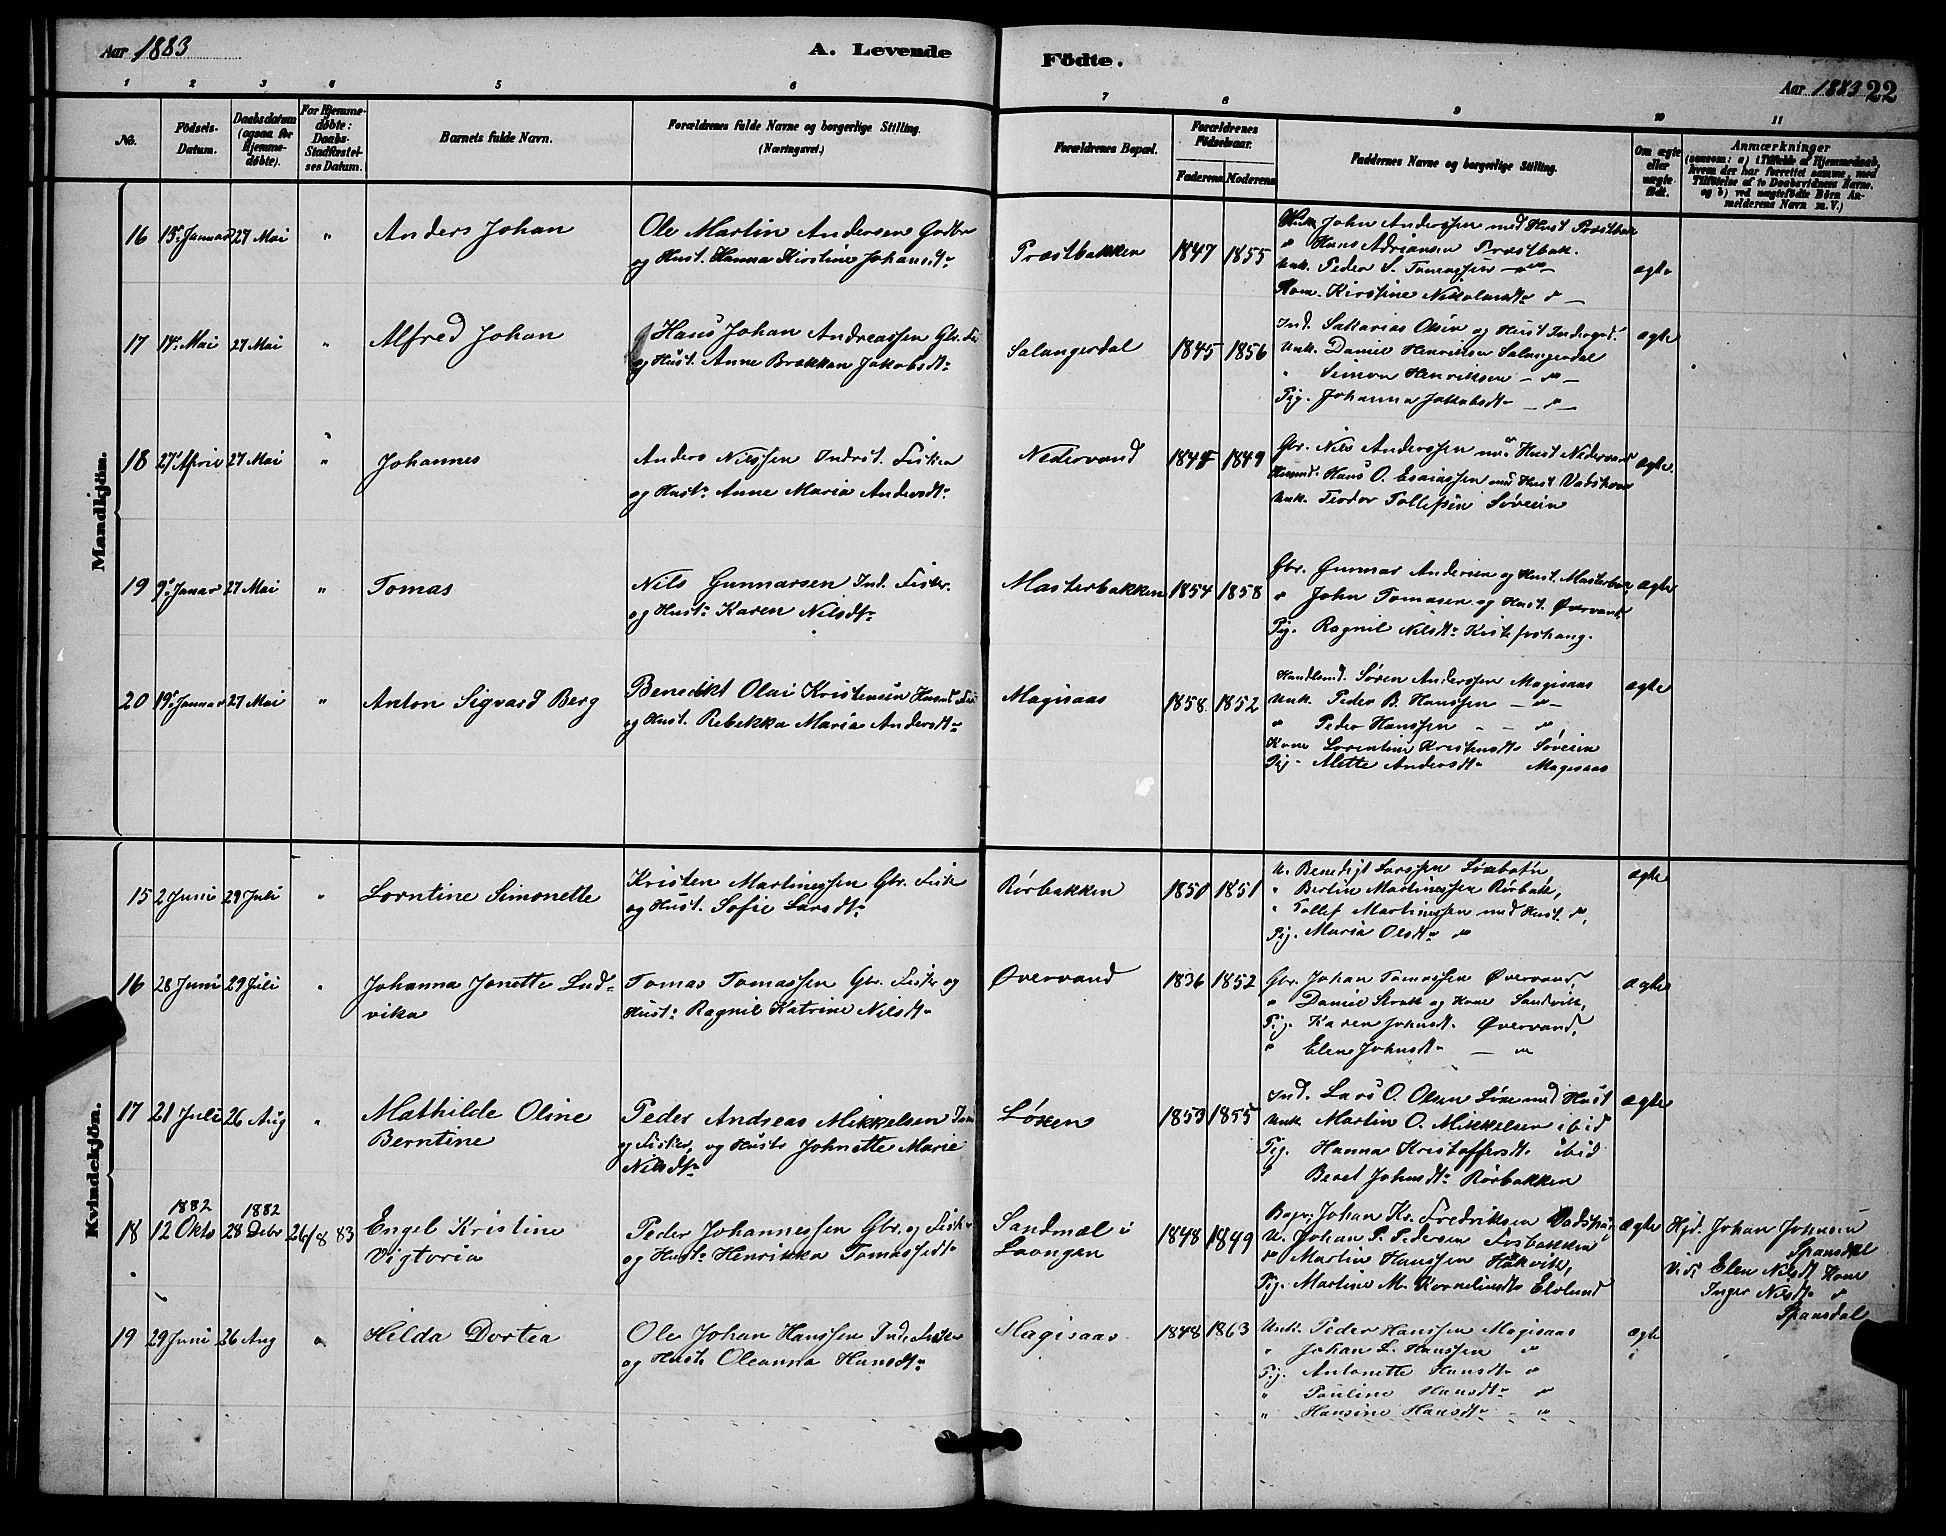 Aar 1883
A. Levende
Födte.
Aar 1883 22
1 2 3 4 5 6 7 8 9 10 11
No.
Födsels-
Datum.
Daabsdatum
(ogsaa for
Hjemme-
døbte).
For Hjemme-
døbte:
Daabs-
Stadfæstel-
ses Datum.
Barnets fulde Navn.
Forældrenes fulde Navne og borgerlige Stilling.
(Næringsvei.)
Forældrenes Bopæl.
Forældrenes
Födselsaar.
Faderens Moderens
Faddernes Navne og borgerlige Stilling.
Om ægte
eller
uægte
födt.
Anmærkninger
(saasom: a) i Tilfælde af Hjemmedaab,
hvem der har forrettet samme, med
Tilföielse af to Daabsvidners Navne,
og b) ved uægtefödte Börn An-
melderens Navn m. V.)
Mandkjön.
16 Januar 27 Mai " Anders Johan
Ole Martin Andersen Gbr
og Hust. Hanna Kirstine Johansdtr
Præstbakken 1847 1855
John Anderssen med Hust Præstbak
" Hans Adriansen Præstbak.
Unk. Peder S. Tomassen — " —
Kirstine Nikolaisdtr " —
ægte
17 14 Mai 27 Mai " Alfred Johan
Hans Johan Andreassen Gbr. Fi
og Hust. Anne Brokkan Jakobsdtr
Salangerdal 1845 1856
Ind. Sakarias Olsen og Hust Indergd.
Unk. Daniel Henriksen Salangerdal
" Simon Henriksen — " —
Pig. Johanna Jakobsdtr — " —
ægte
18 27 April 27 Mai " Johannes
Anders Nilssen Indrst. Fisker
og Hustr Anne Maria Andersdtr
Nedervand 1849
Gbr. Nils Anderssen m. Hust Nedervand
Husmd. Hans O. Esaiassen med Hust
Unk. Teodor Tollefsen Søveien
ægte
19 9 Januar 27 Mai " Tomas
Nils Gunnarsen Ind. Fisker.
og Hustr Karen Nilsdtr
Masterbakken 1854 1858
Gbr. Gunnar Andersen og Hust. Masterbak
" John Tomasen og Hust. Øvervand
Pig. Ragnil Nilsdtr
ægte
20 19 Januar 27 Mai " Anton Sigvard Berg
Benedikt Olai Kristensen Husmd Fi
og Hust. Rebekka Maria Andersdtr
Magisaas 1858 1852
Handlsmd. Søren Anderssen Magisaas
Unk. Peder B. Hanssen — " —
" Peder Hanssen - - "
Kone Lorentine Kristensdtr Søveien
Pig - Alette Andersdtr Magisaas
ægte
Kvindekjön.
15 2 Juni 29 Juli " Lorntine Simonette
Kristen Martinessen Gbr. Fisk
og Hust. Sofie Larsdtr
Rørbakken 1850 1851
U. Benedigt Larssen
" Bertin Martinessen Rørbak,
" Tollef Martinessen med Hust. ",
Pig. Maria Olsdtr "
ægte
16 28 Juni 29 Juli " Johanna Jonette Lud-
vika
Tomas Tomassen Gbr. Fisker og
Hustr Ragnil Katrine Nilsdtr
Øvervand 1836 1852
Gbr. Johan Tomassen Øvervand,
" Daniel og Kone Sandvik,
Pig. Karen Johnsdtr Øvervand,
" Elen Johnsdtr — "
ægte
17 21 Juli 26 Aug " Mathilde Oline
Berntine
Peder Andreas Mikkelsen
og Fisker, og Hustr Johnette Marie
Nilsdtr
Løsen 1853 1855
Ind. Lars O. Olsen med Hust
Unk. Martin O. Mikkelsen ibid
Pig. Hanna Kristoffersdtr ibid
" Beret Johnsdtr Rørbakken
ægte
1882 1882
18 12 Oktb 28 Debr 26/8 83 Engel Kristine
Vigtoria
Peder Johannessen Gbr. og Fisker
og Hustr Henrikka Tomassedtr
Sandmæl i
Lavangen
1848 1849
Johan Kr. Fredriksen
U. Johan P. Pedersen Fosbakken
" Martin Hanssen Haakvik,
Pig. Martine M. Korneliusdtr Elvlund
ægte
Hjd. Johan Johnsen
Spansdal
Vid: Elen Nilsdt Kone
Inger Nilsdtr "
Spansdal
19 29 Juni 26 Aug " Hilda Dortea
Ole Johan Hanssen Ind. Fisker
og Hustr Oleanna Hansdtr
Magisaas 1848 1863
Unk. Peder Hanssen Magisaas
" Johan L. Hanssen "
Pig. Antonette Hansdtr "
" Pauline Hansdtr "
" Hansine Hansdtr - "
ægte